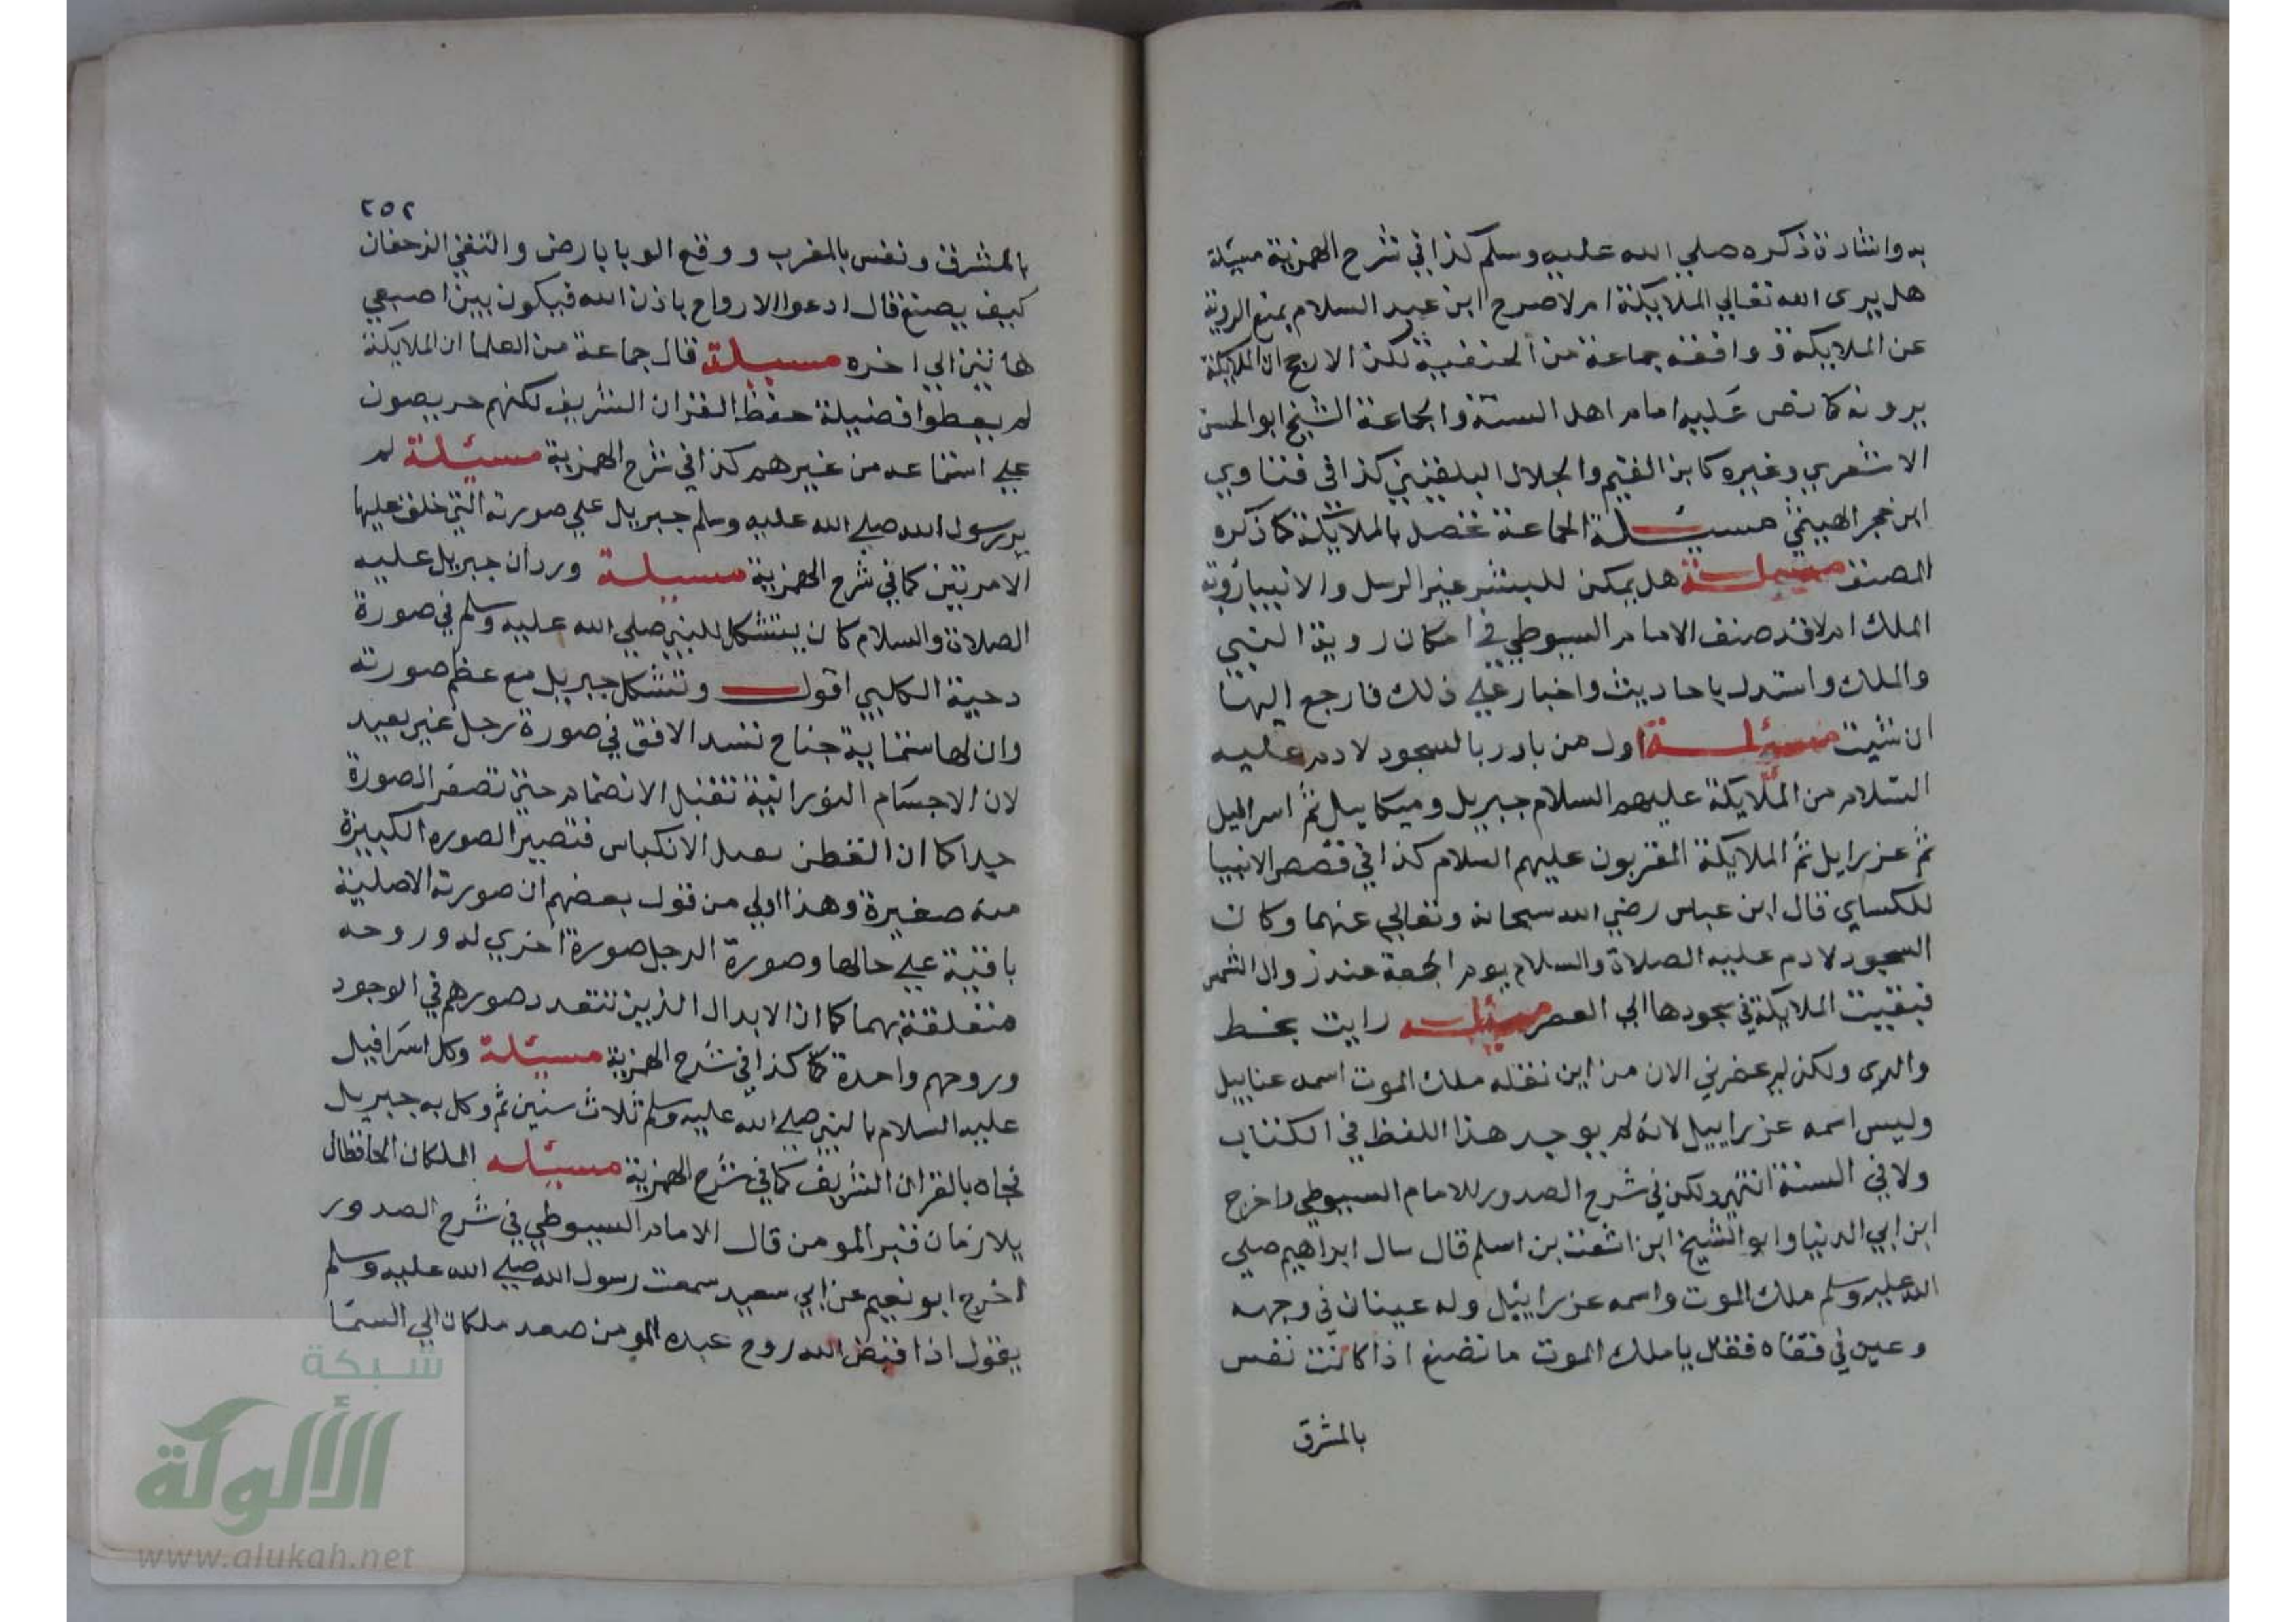 به واشادة ذكره صلي الله عليه وسلم كذا في شرح الهمزية مسئلة
هل يري الله تعالي الملايكة ام لا صرح ابن عبد السلام بمنع الروية
عن الملايكة و وافقه جماعة من الحنفية لكن الارجح ان الملايكة
يرونه كما نص عليه امام اهل السنة والجماعة الشيخ ابو الحسن
الاشعري وغيره كابن القيم والجلال البلقيني كذا في فتاوي
ابن حجر الهيتمي مسيلة الجماعة تحصل بالملايكة كما ذكره
المصنف مسئلة هل يمكن للبشر غير الرسل والانبيا رؤية
الملك ام لا قد صنف الامام السيوطي في امكان روية النبي
والملك واستدل باحاديث واخبار علي ذلك فارجع اليها
ان شيت مسئلة اول من بادر بالسجود لادم عليه
السلام من الملايكة عليهم السلام جبريل وميكاييل ثم اسرافيل
ثم عزرايل ثم الملايكة المقربون عليهم السلام كذا في قصص الانبيا
للكساي قال ابن عباس رضي الله سبحانه وتعالي عنهما وكان
السجود لادم عليه الصلاة والسلام يوم الجمعة عند زوال الشمس
فبقيت الملايكة في سجودها الي العصر مسئله رايت بخط
والدي ولكن لم يحضرني الان من اين نقله ملك الموت اسمه عناييل
وليس اسمه عزراييل لانه لم يوجد هذا اللفظ في الكتاب
ولا في السنة انتهي ولكن في شرح الصدور للامام السيوطي واخرج
ابن ابي الدنيا وابو الشيخ ابن اشعث بن اسلم قال سال ابراهيم صلي
الله عليه وسلم ملك الموت واسمه عزرائيل وله عينان في وجهه
وعين في قفاه فقال يا ملك الموت ما تصنع اذا كانت نفس
بالمشرق
٢٥٢
بالمشرق ونفس بالمغرب و وقع الوبا بارض والتقي الزحفان
كيف يصنع قال ادعوا الارواح باذن الله فيكون بين اصبعي
هاتين الي اخره مسيلة قال جماعة من العلما ان الملايكة
لم يعطوا فضيلة حفظ القران الشريف لكنهم حريصون
علي استماعه من غيرهم كذا في شرح الهمزية مسئلة لم
ير رسول الله صلي الله عليه وسلم جبريل علي صورته التي خلق عليها
الا مرتين كما في شرح الهمزية مسيلة ورد ان جبريل عليه
الصلاة والسلام كان يتشكل للنبي صلي الله عليه وسلم في صورة
دحية الكلبي اقول وتشكل جبريل مع عظم صورته
وان لها ستماية جناح تسد الافق في صورة رجل غير بعيد
لان الاجسام النورانية تقبل الانضمام حتي تصغر الصورة
جدا كما ان القطن يقبل الانكباس فتصير الصوره الكبيرة
منه صغيرة وهذا اولي من قول بعضهم ان صورته الاصلية
باقية علي حالها وصورة الرجل صورة اخري له وروحه
متعلقة بهما كما ان الابدال الذين تتعدد صورهم في الوجود
وروحهم واحدة كما كذا في شرح الهمزية مسئلة وكل اسرافيل
عليه السلام بالنبي صلي الله عليه وسلم ثلاث سنين ثم وكل به جبريل
فجاه بالقران الشريف كما في شرح الهمزية مسئله الملكان الحافظان
يلازمان قبر المومن قال الامام السيوطي في شرح الصدور
اخرج ابو نعيم عن ابي سعيد سمعت رسول الله صلي الله عليه وسلم
يقول اذا قبض الله روح عبده المومن صعد ملكان الي السما
شبكة
الألوكة
www.alukah.net